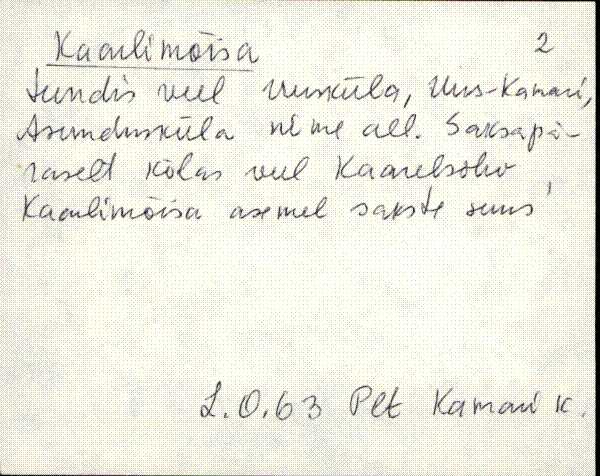 Kaarlimõisa 2
tundis veel Uusküla, Uus-Kamari,
Asundusküla nime all. Saksapä-
raselt kõlas veel Kaarelshov
Kaarlimõisa asemel sakste suus'
L.O.63 Plt Kamari k.